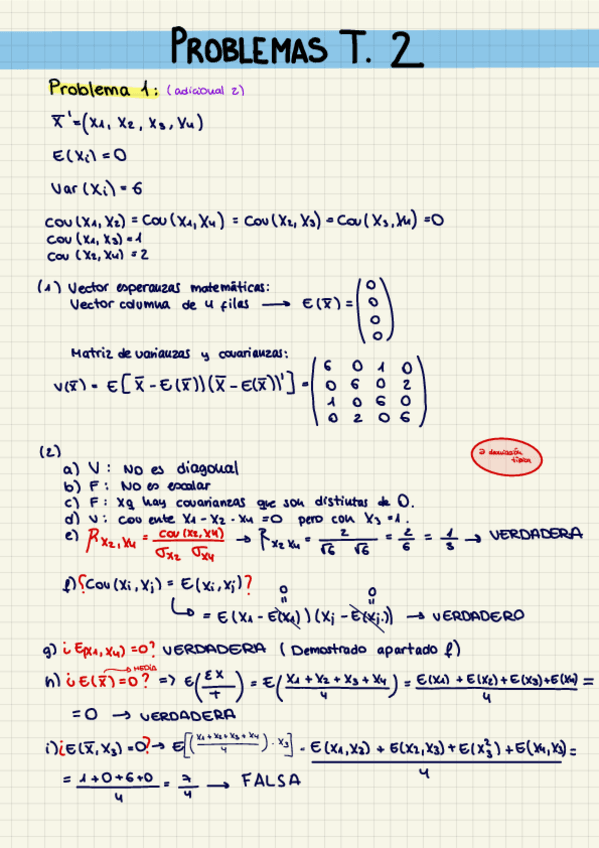 PROBLEMAS T. 2
Problema 1: (adicional 2)
X̄' = (X1, X2, X3, X4)
E(Xi) = 0
Var (Xi) = 6
COV (X1, X2) = COV (X1, X4) = COV (X2, X3) = COV (X3, X4) = 0
COV (X1, X3) = 1
COV (X2, X4) = 2
(1) Vector esperanzas matemáticas:
Vector columna de 4 filas → E(X̄) = (0 0 0 0)
Matriz de varianzas y covarianzas:
V(X̄) = E[X̄ - E(X̄))(X̄ - E(X̄))'] =
6 0 1 0
0 6 0 2
1 0 6 0
0 2 0 6
(2)
a) V: NO es diagonal
b) F: NO es escalar
c) F: xq hay covarianzas que son distintas de 0.
d) V: cov ente X1 - X2 - X4 = 0 pero con X3 = 1.
e) R x2,x4 = cov (x2, x4) / σx2 σx4 → R x2x4 = 2 / √6 √6 = 2/6 = 1/3 → VERDADERA
∂ desviación típica
f) ¿Cov (Xi, Xj) = E(Xi, Xj)?
0 0
= E (X1 - E(X1)) (Xj - E(Xj)) → VERDADERO
g) ¿E(X1, X4) = 0? VERDADERA (Demostrado apartado f)
MEDIA
h) ¿E(X̄) = 0? => E(ΣX / T) = E(X1 + X2 + X3 + X4 / 4) = E(X1) + E(X2) + E(X3) + E(X4) / 4 =
= 0 → VERDADERA
i) ¿E(X̄, X3) = 0? → E[(X1 + X2 + X3 + X4 / 4) · X3] = E(X1, X2) + E(X2, X3) + E(X3²) + E(X4, X3) / 4 =
= 1 + 0 + 6 + 0 / 4 = 7/4 → FALSA